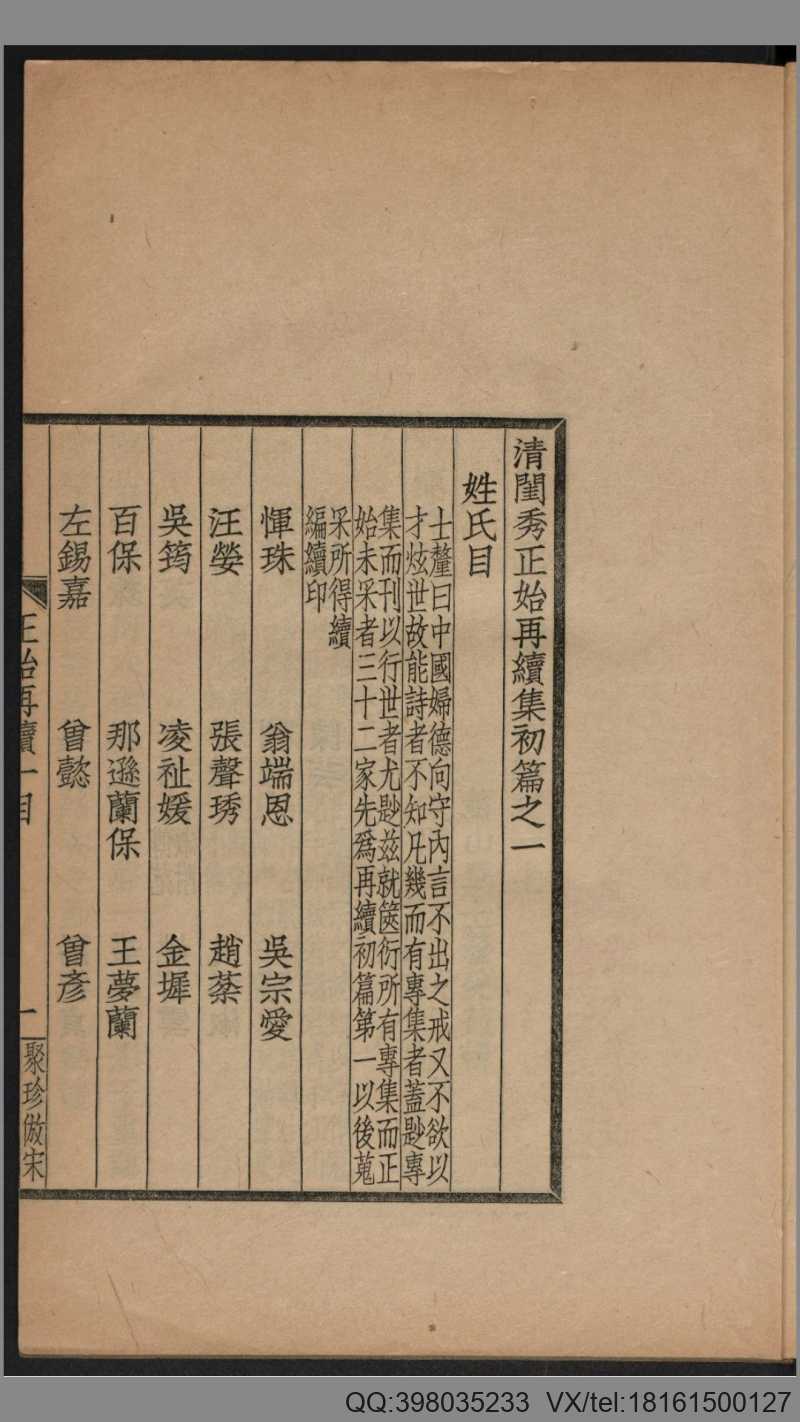 清閨秀正始再續集初篇之一
姓氏目
士釐曰中國婦德向守內言不出之戒又不欲以
才炫世故能詩者不知凡幾而有專集者蓋尟專
集而刊以行世者尤尟茲就篋衍所有專集而正
始未采者三十二家先爲再續初篇第一以後蒐
采所得續
編續印
惲珠 翁端恩 吳宗愛
汪嫈 張聲琇 趙棻
吳筠 凌祉媛 金墀
百保 那遜蘭保 王夢蘭
左錫嘉 曾懿 曾彥
正始再續一目 一 聚珍倣宋
QQ:398035233 VX/tel:18161500127